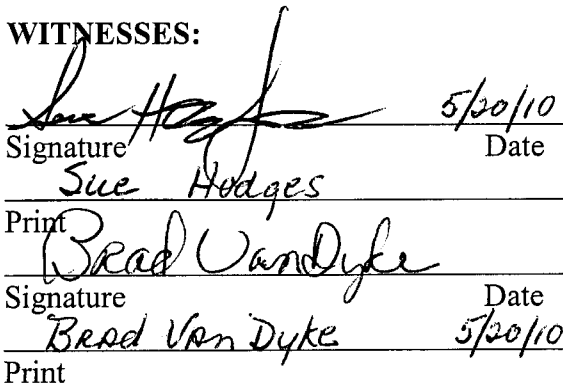 WITNESSES:
Sue Hodges 5/20/10
Signature Date
Sue Hodges
Print
Brad VanDyke
Signature Date
Brad Van Dyke 5/20/10
Print